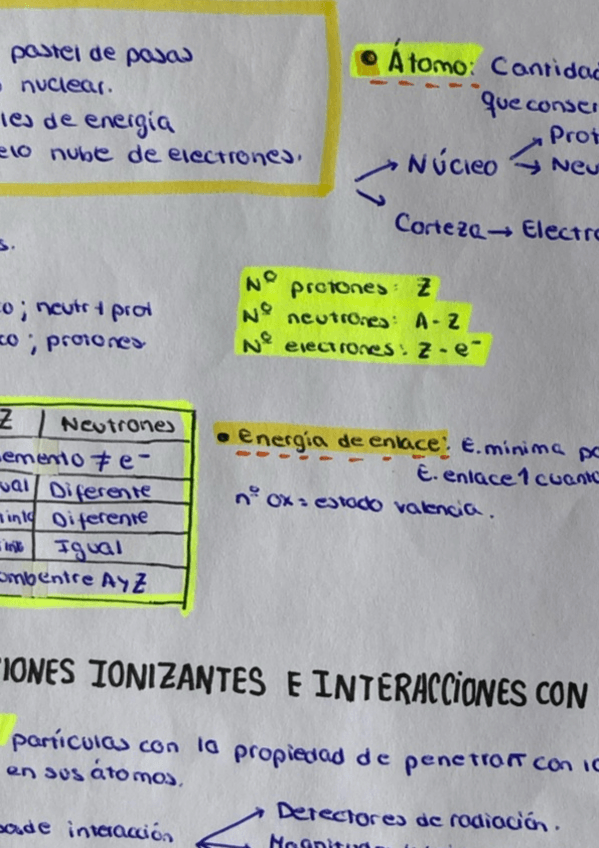 pastel de pasas
nuclear.
les de energía
elo nube de electrones.
• Átomo: Cantidad
que conser
Núcleo → Prot
→ Neu
Corteza → Electro
s.
co; neutr + prot
co; protones
Nº protones: Z
Nº neutrones: A-Z
Nº electrones: Z-e⁻
Z | Neutrones
emento ≠ e⁻
ual | Diferente
Diferente
Igual
omb entre A y Z
• Energía de enlace: E. mínima pa
E. enlace 1 cuanto
nº ox = estado valencia.
IONES IONIZANTES E INTERACCIONES CON
partículas con la propiedad de penetrar con
en sus átomos.
interacción
Detectores de radiación.